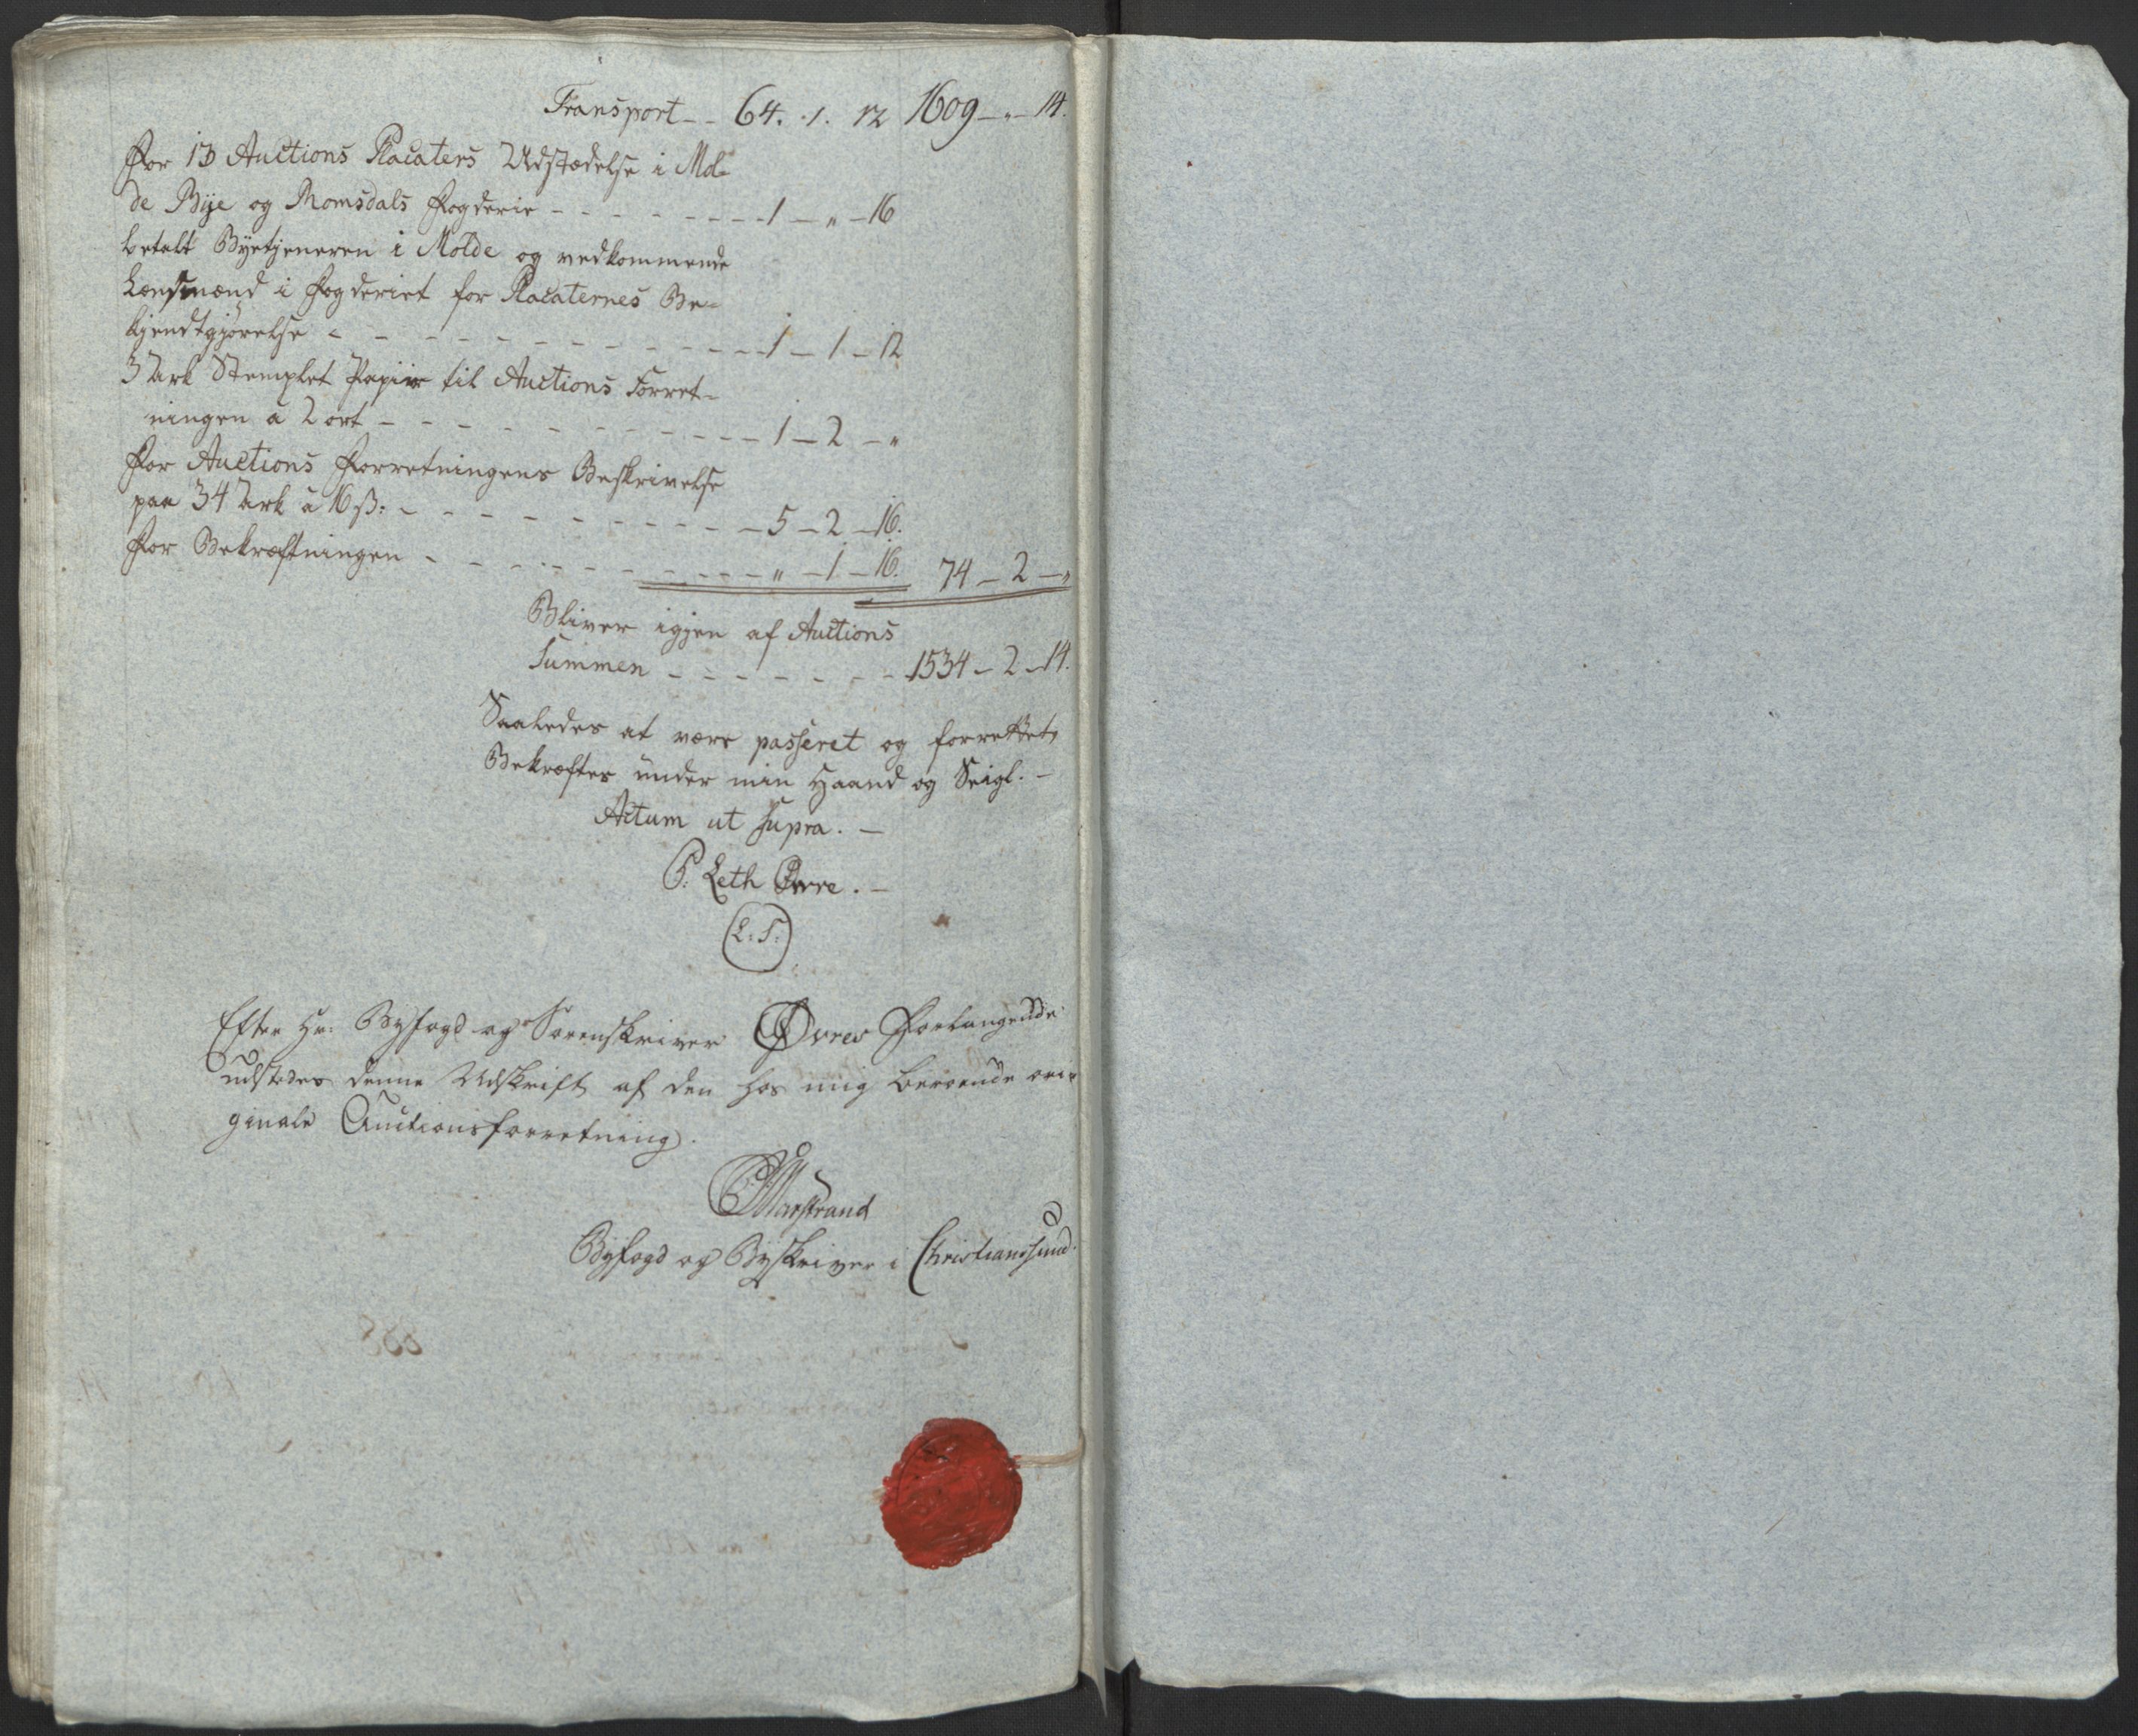 Transport - - 64. 1. 12 1609 - " - 14.
For 13 Auctions Placaters Udstædelse i Mol-
de Bye og Romsdals Fogderie - - - - - - - - 1 - " - 16
betalt Byetjeneren i Molde og vedkommende
Lensmænd i Fogderiet for Placaternes Be-
kjendtgjørelse - - - - - - - - - - - - 1 - 1 - 12
3 Ark Stemplet Papiir til Auctions Forret-
ningen a 2 ort - - - - - - - - - - - 1 - 2 - "
For Auctions Forretningens Beskrivelse
paa 34 Ark a 16 ß: - - - - - - - - - - 5 - 2 - 16.
For Bekræftningen - - - - - - - - - - " - 1 - 16. 74 - 2 - "
Bliver igjen af Auctions
Summen - - - - - - - 1534 - 2 - 14.
Saaledes at være passeret og forrettet,
Bekræftes under min Haand og Seigl. -
Actum ut supra. -
P: Leth Øvre. -
(L: S:)
Efter Hr: Byfogd og Sorenskriver Øvres Forlangende
udstedes denne Udskrift af den hos mig beroende ori-
ginale Auctionsforretning.
Marstrand
Byfogd og Byskriver i Christianssund.